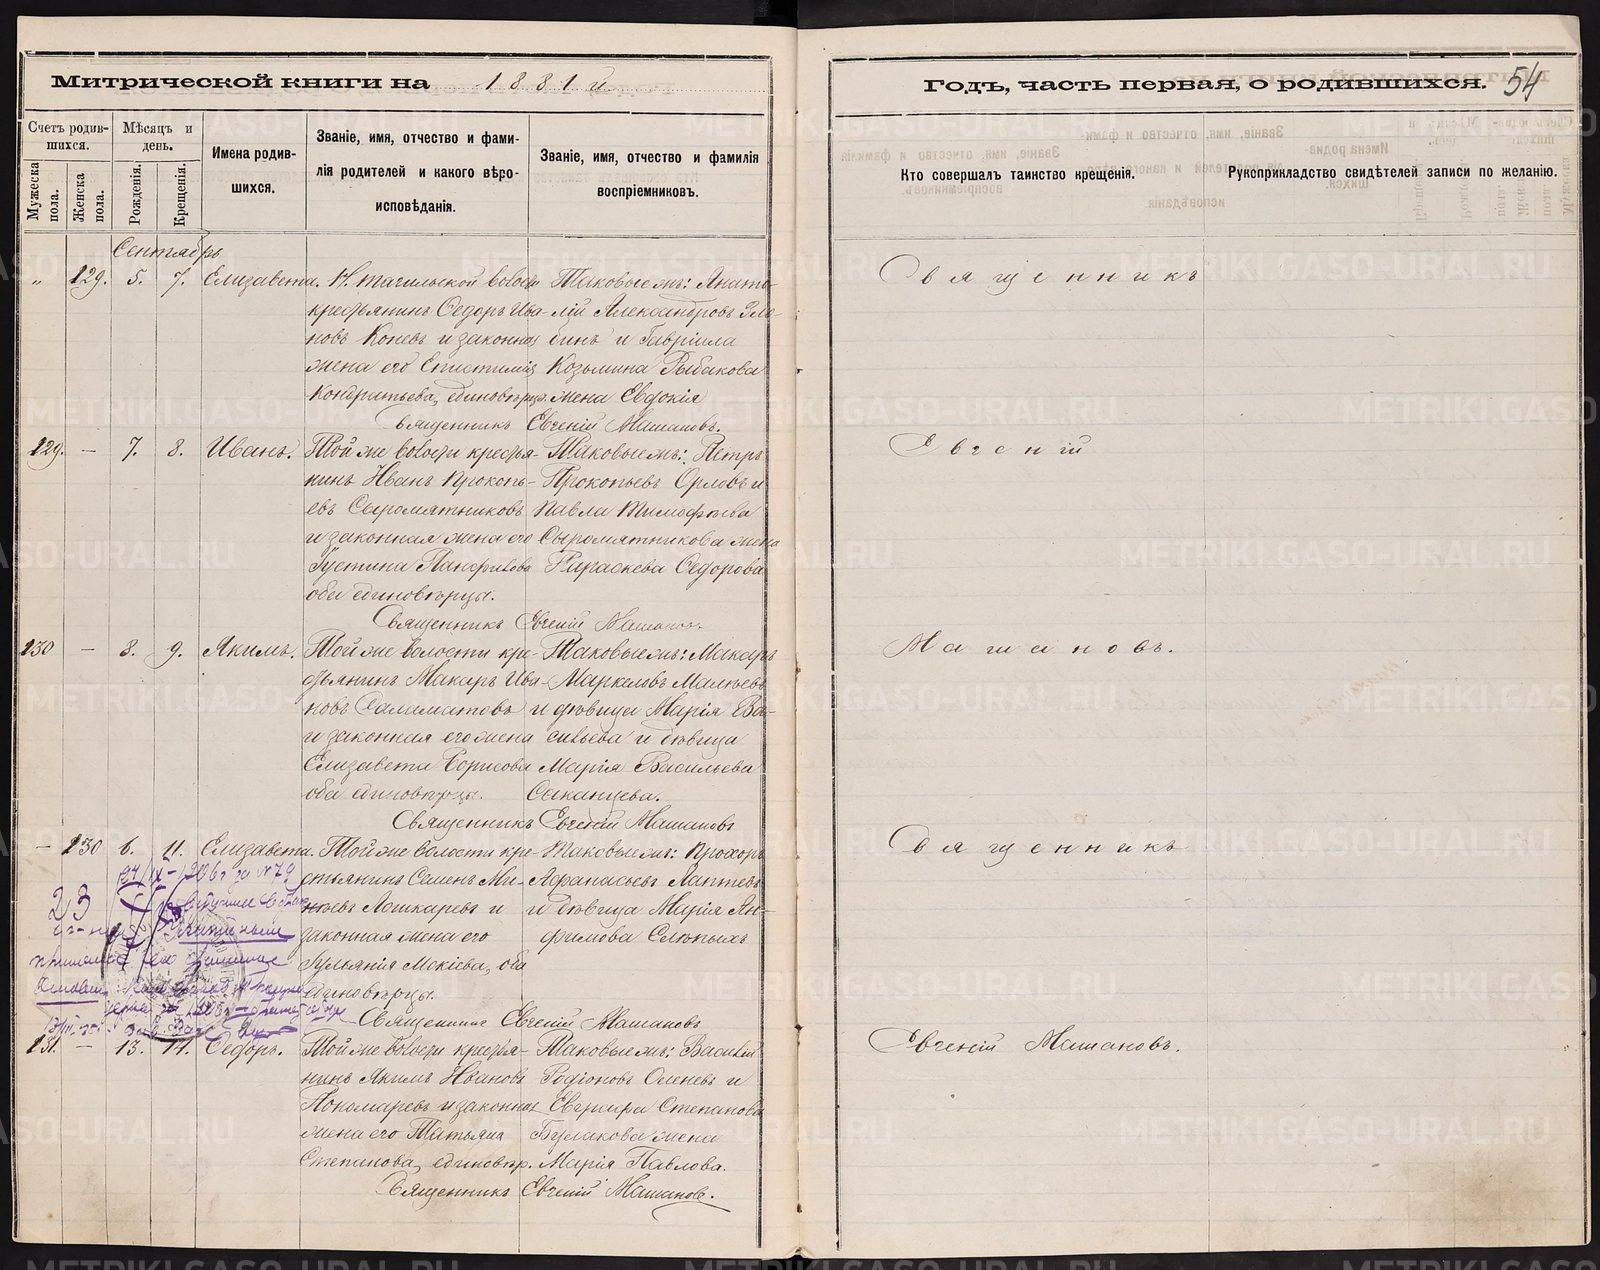 Митрической книги на 1881 й
Годъ, часть первая, о родившихся. 54
Счетъ родив-
шихся.
Мужеска
пола.
Женска
пола.
Мѣсяцъ и
день.
Рожденія.
Крещенія.
Имена родив-
шихся.
Званіе, имя, отчество и фами-
лія родителей и какого вѣро-
исповѣданія.
Званіе, имя, отчество и фамилія
воспріемниковъ.
Кто совершалъ таинство крещенія.
Рукоприкладство свидѣтелей записи по желанію.
Сентябрь
„ 129. 5. 7. Елизавета.
Н. тагильской волости
крестьянинъ Ѳедоръ Ива-
новъ Коневъ и законная
жена его Епистимія
Кондратьева, единовѣрц.
Таковые жъ: Анато-
лій Александровъ
и Гавріила
Козьмина Рыбакова
жена Евдокія
Священникъ Евгеній Машановъ.
129. — 7. 8. Иванъ.
Той же волости крестья-
нинъ Иванъ Прокопь-
евъ Сыромятниковъ
и законная жена его
Густина Панфилова
оба единовѣрцы.
Таковые жъ: Петръ
Прокопьевъ Орловъ и
Павла Тимофѣева
Сыромятникова жена
Параскева Ѳедорова
Священникъ Евгеній Машановъ
130 — 8. 9. Якимъ.
Той же волости кре-
стьянинъ Макаръ Ива-
новъ Саламатовъ
и законная его жена
Елизавета Борисова
оба единовѣрцы.
Таковые жъ: Макаръ
Маркеловъ
и дѣвица Марія Ва-
сильева и дѣвица
Марія Васильева
Секанцева.
Священникъ Евгеній Машановъ
— 130 6. 11. Елизавета.
Той же волости кре-
стьянинъ Семенъ Ми-
нѣевъ Лошкаревъ и
законная жена его
Гульянія Мокіева, оба
единовѣрцы.
Таковые жъ: Прохоръ
Афанасьевъ Лаптевъ
и дѣвица Марія Ан-
фимова Слѣпыхъ
Священникъ Евгеній Машановъ
23
131. — 13. 14. Ѳедоръ.
Той же волости крестья-
нинъ Якимъ Ивановъ
Пономаревъ и законная
жена его Татьяна
Степанова, единовѣр.
Таковые жъ: Василій
Родіоновъ Оленевъ и
Степанова
Булакова жена
Марія Павлова.
Священникъ Евгеній Машановъ.
Священникъ
Евгеній
Машановъ.
Священникъ
Евгеній Машановъ.
METRIKI.GASO-URAL.RU